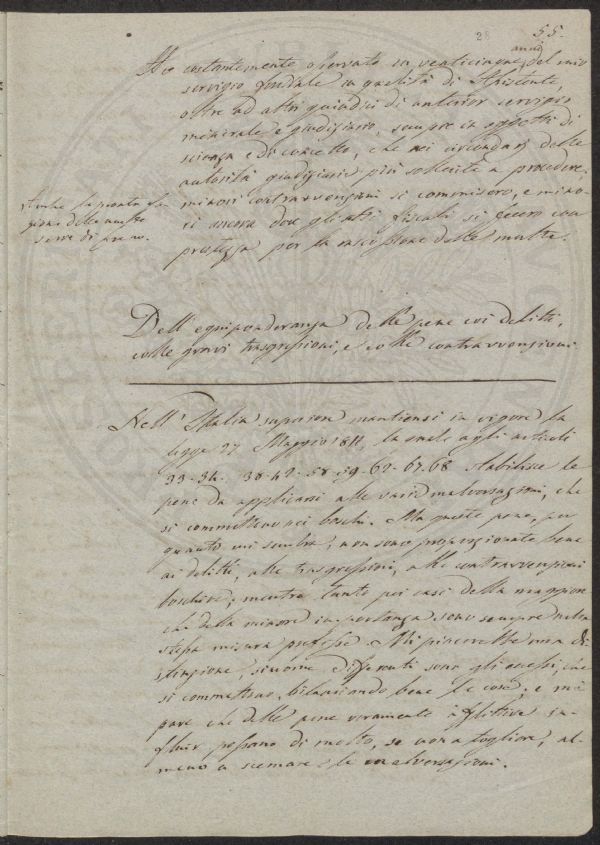 28
55.
anni
Ho costantemente osservato in venticinque del mio
servigio forestale in qualità di Assistente,
oltre ad altri quindici di anterior servigio
e giudiziario, sempre in oggetti di
scienza e di concetto, che nei circondarj delle
autorità giudiziarie più sollecite a procedere,
minori contravvenzioni si commisero, e mino-
ri ancora dove gli atti fiscali si fecero con
prestezza per la riscossione delle multe.
Anche la pronta
delle multe
serve di freno.
Dell' equiponderanza delle pene coi delitti,
colle gravi trasgressioni, e colle contravvenzioni
Nell' Italia superiore mantiensi in vigore la
legge 27 Maggio 1811, la quale agli articoli
33. 34. 38. 42. 58. 59. 62. 67. 68 stabilisce le
pene da applicarsi alle varie malversazioni, che
si commettono nei boschi. Ma queste pene, per
quanto mi sembra, non sono proporzionate bene
ai delitti, alle trasgressioni, alle contravvenzioni
boschive; mentre tanto pei casi della maggiore
che della minore importanza sono sempre nella
stessa misura prefisse. Mi piacerebbe una di-
stinzione, siccome differenti sono gli eccessi, che
si commettono, bilanciando bene le cose; e mi
pare che delle pene veramente afflittive in-
fluir possano di molto, se non a togliere, al-
meno a scemare le malversazioni.